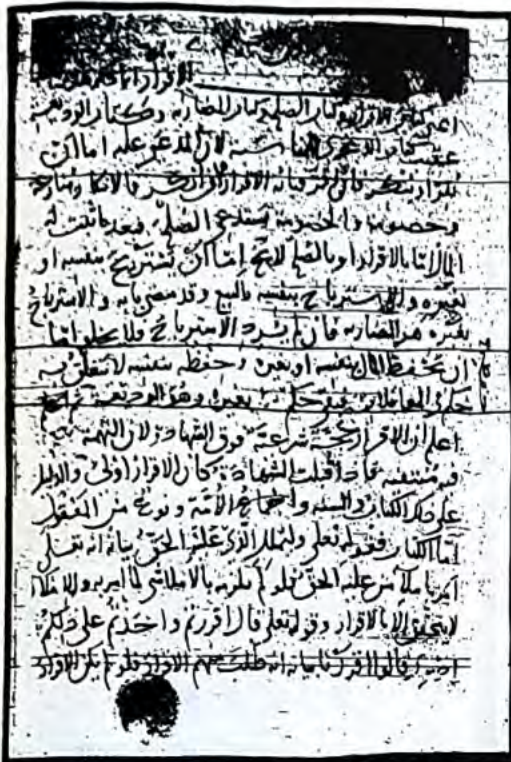 اعلم كتاب الاقرار وكتاب الصلح وكتاب المضاربه وكتاب الوديعه
عقيب كتاب الدعوى لمناسبه لان المدعى عليه اما ان
يقر او ينكر فان اقر فبابه الاقرار وان انكر فالانكار منازعة
وخصومة والخصومة تستدعي الصلح فبعد ما ثبت له
المال اما بالاقرار او بالصلح لا يخ اما ان يستربح بنفسه او
بغيره والاسترباح بنفسه بالبيع وقد مضى بيانه والاسترباح
بغيره هو المضاربه فان لم يرد الاسترباح فلا يخلو اما
ان يحفظ المال بنفسه او بغيره وحفظه بنفسه لا يتعلق به
حكم في المعاملات فبقي حكم بغيره وهو الوديعة ثم
اعلم ان الاقرار حجة شرعية فوق الشهادة لان التهمه
فيه منتفيه فاذا قبلت الشهادة كان الاقرار اولى والدليل
على ذلك الكتاب والسنه واجماع الأمة ونوع من المعقول
اما الكتاب فقوله تعلى وليملل الذي عليه الحق بيانه انه تعلى
امر باملا من عليه الحق فلو لم يلزمه بالاملا شى لما امر به والاملا
لا يتحقق الا بالاقرار وقوله تعلى قال أقررتم واخذتم على ذلكم
اصرى قالوا اقررنا بيانه انه طلب منهم الاقرار فلو لم يكن الاقرار